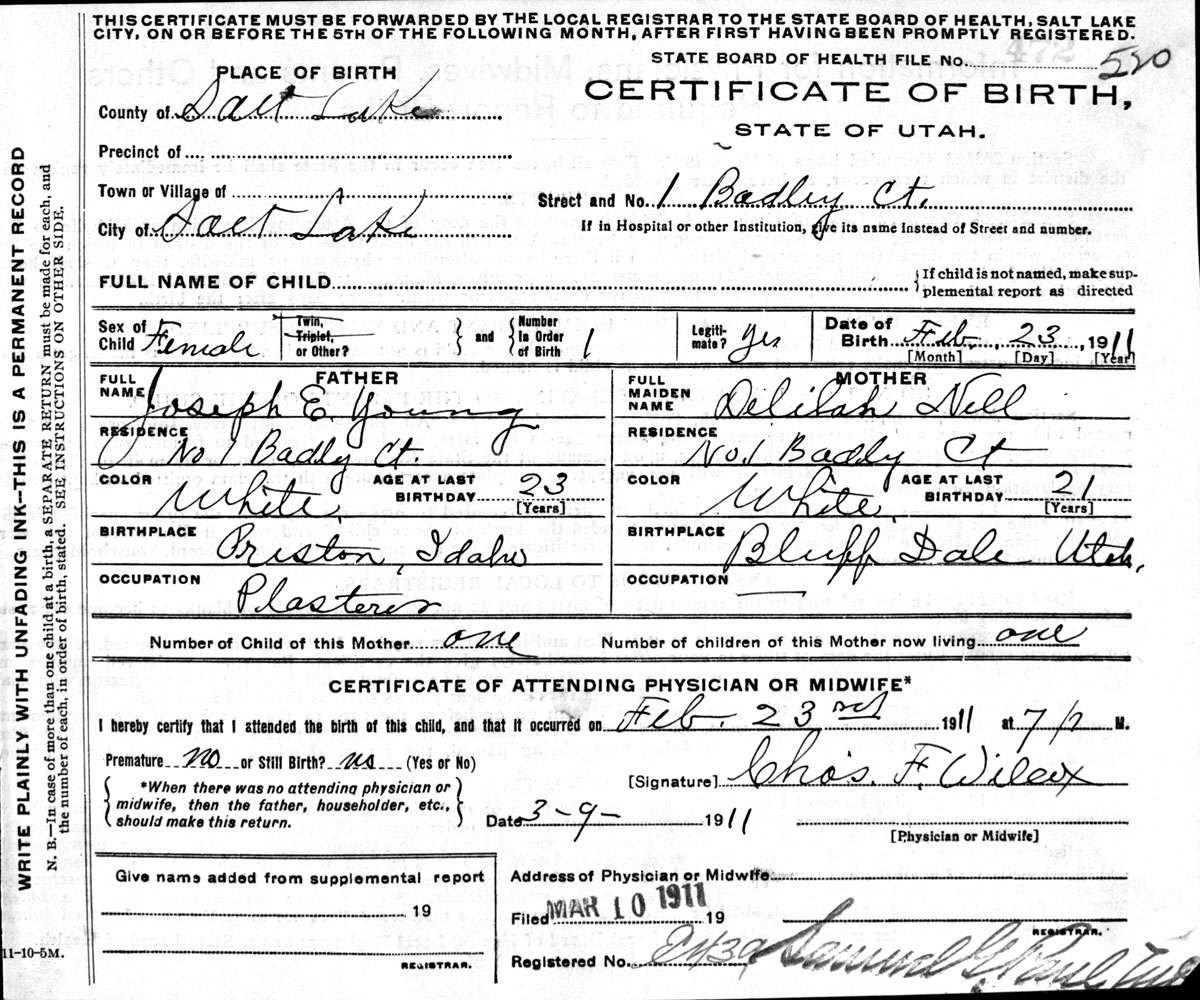 THIS CERTIFICATE MUST BE FORWARDED BY THE LOCAL REGISTRAR TO THE STATE BOARD OF HEALTH, SALT LAKE
CITY, ON OR BEFORE THE 5TH OF THE FOLLOWING MONTH, AFTER FIRST HAVING BEEN PROMPTLY REGISTERED.
STATE BOARD OF HEALTH FILE No. 520
PLACE OF BIRTH
CERTIFICATE OF BIRTH,
County of Salt Lake
STATE OF UTAH.
Precinct of
Town or Village of
Street and No. 1 Badly Ct.
City of Salt Lake
If in Hospital or other Institution, give its name instead of Street and number.
FULL NAME OF CHILD
{If child is not named, make sup-
plemental report as directed
Sex of Child Female
Twin, Triplet, or Other?
and
Number in Order of Birth 1
Legiti-mate? Yes
Date of Birth Feb. 23, 1911
[Month] [Day] [Year]
FATHER
FULL NAME Joseph E. Young
RESIDENCE No. 1 Badly Ct.
COLOR White.
AGE AT LAST BIRTHDAY 23 [Years]
BIRTHPLACE Preston, Idaho
OCCUPATION Plasterer
MOTHER
FULL MAIDEN NAME Delilah Nill
RESIDENCE No. 1 Badly Ct
COLOR White
AGE AT LAST BIRTHDAY 21 [Years]
BIRTHPLACE Bluff Dale Utah.
OCCUPATION —
Number of Child of this Mother one
Number of children of this Mother now living one
CERTIFICATE OF ATTENDING PHYSICIAN OR MIDWIFE*
I hereby certify that I attended the birth of this child, and that it occurred on Feb. 23 1911 at M.
Premature no or Still Birth? no (Yes or No)
[Signature] Chas. F. Wilcox
{*When there was no attending physician or
midwife, then the father, householder, etc.,
should make this return.}
Date 3-9- 1911
[Physician or Midwife]
Give name added from supplemental report
19
REGISTRAR.
Address of Physician or Midwife
Filed MAR 10 1911 19
REGISTRAR.
Registered No. Samuel G.
11-10-5M.
WRITE PLAINLY WITH UNFADING INK--THIS IS A PERMANENT RECORD
N. B.—In case of more than one child at a birth, a SEPARATE RETURN must be made for each, and
the number of each, in order of birth, stated. SEE INSTRUCTIONS ON OTHER SIDE.